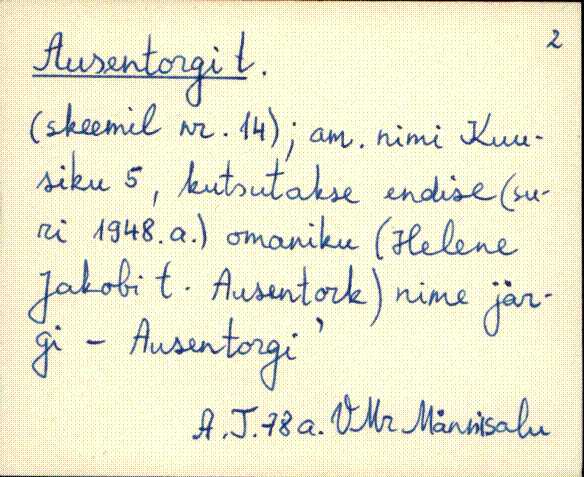 2
Ausentorgi t.
(skeemil nr. 14); am. nimi Kuu-
siku 5, kutsutakse endise (su-
ri 1948.a.) omaniku (Helene
Jakobi t. Ausentork) nime jär-
gi - Ausentorgi'
A.J. 78 a. VMr Männisalu